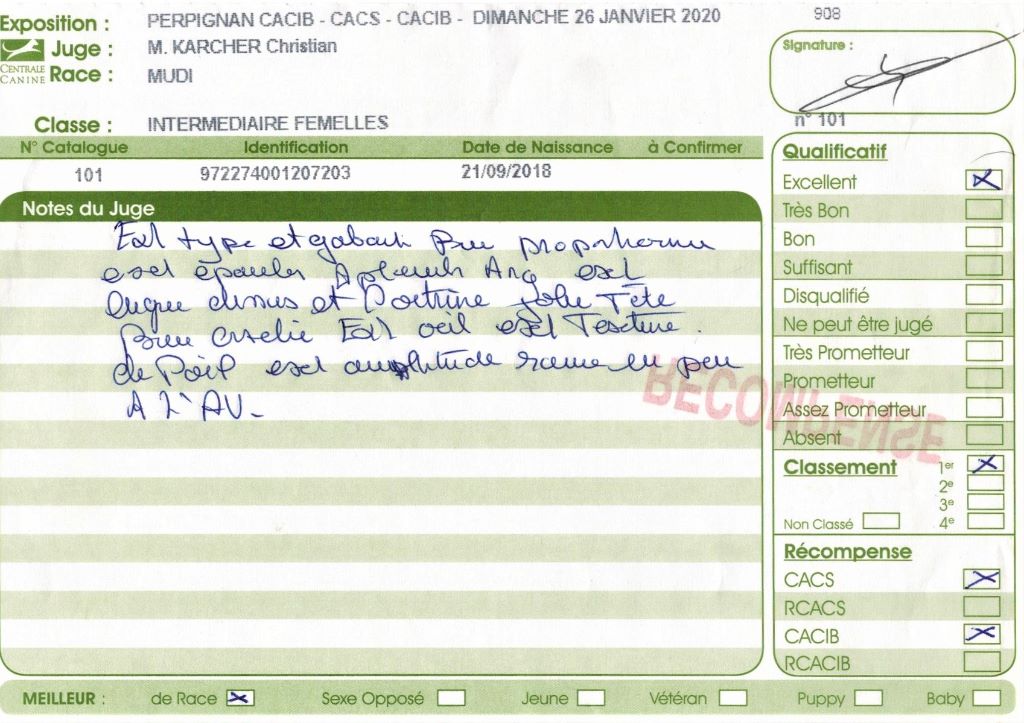 Exposition : PERPIGNAN CACIB - CACS - CACIB - DIMANCHE 26 JANVIER 2020
908
Juge : M. KARCHER Christian
CENTRALE CANINE
Race : MUDI
Signature :
Classe : INTERMEDIAIRE FEMELLES
n° 101
N° Catalogue Identification Date de Naissance à Confirmer
101 972274001207203 21/09/2018
Notes du Juge
Exl type et gabarit Bien
exel épaules Aplombs Ang exel
et Poitrine jolie Tête
Bien Exl oeil exel Texture.
de Poil exel amplitude un peu
A L'AV-
Qualificatif
Excellent
Très Bon
Bon
Suffisant
Disqualifié
Ne peut être jugé
Très Prometteur
Prometteur
Assez Prometteur
Absent
RECOMPENSE
Classement 1er
2e
3e
Non Classé 4e
Récompense
CACS
RCACS
CACIB
RCACIB
MEILLEUR : de Race Sexe Opposé Jeune Vétéran Puppy Baby